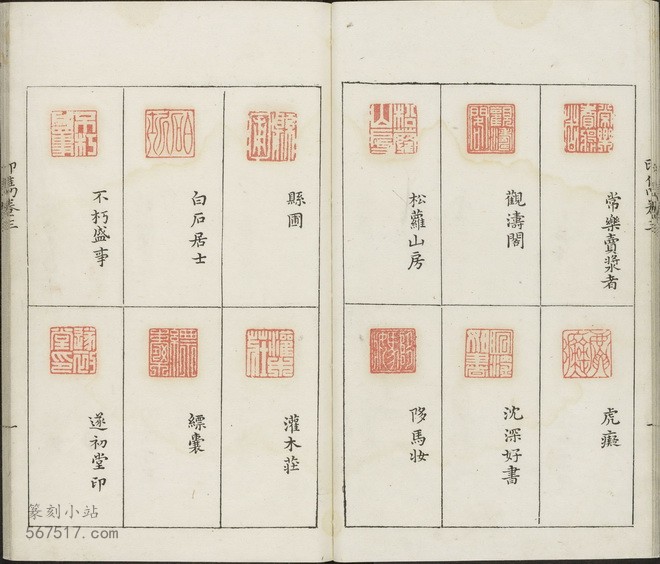 常樂賣漿者
觀濤閣
松蘿山房
虎癡
沈深好書
陊馬妝
縣圃
白石居士
不朽盛事
灌木莊
縹囊
遂初堂印
印雋卷三
篆刻小站
567517.com